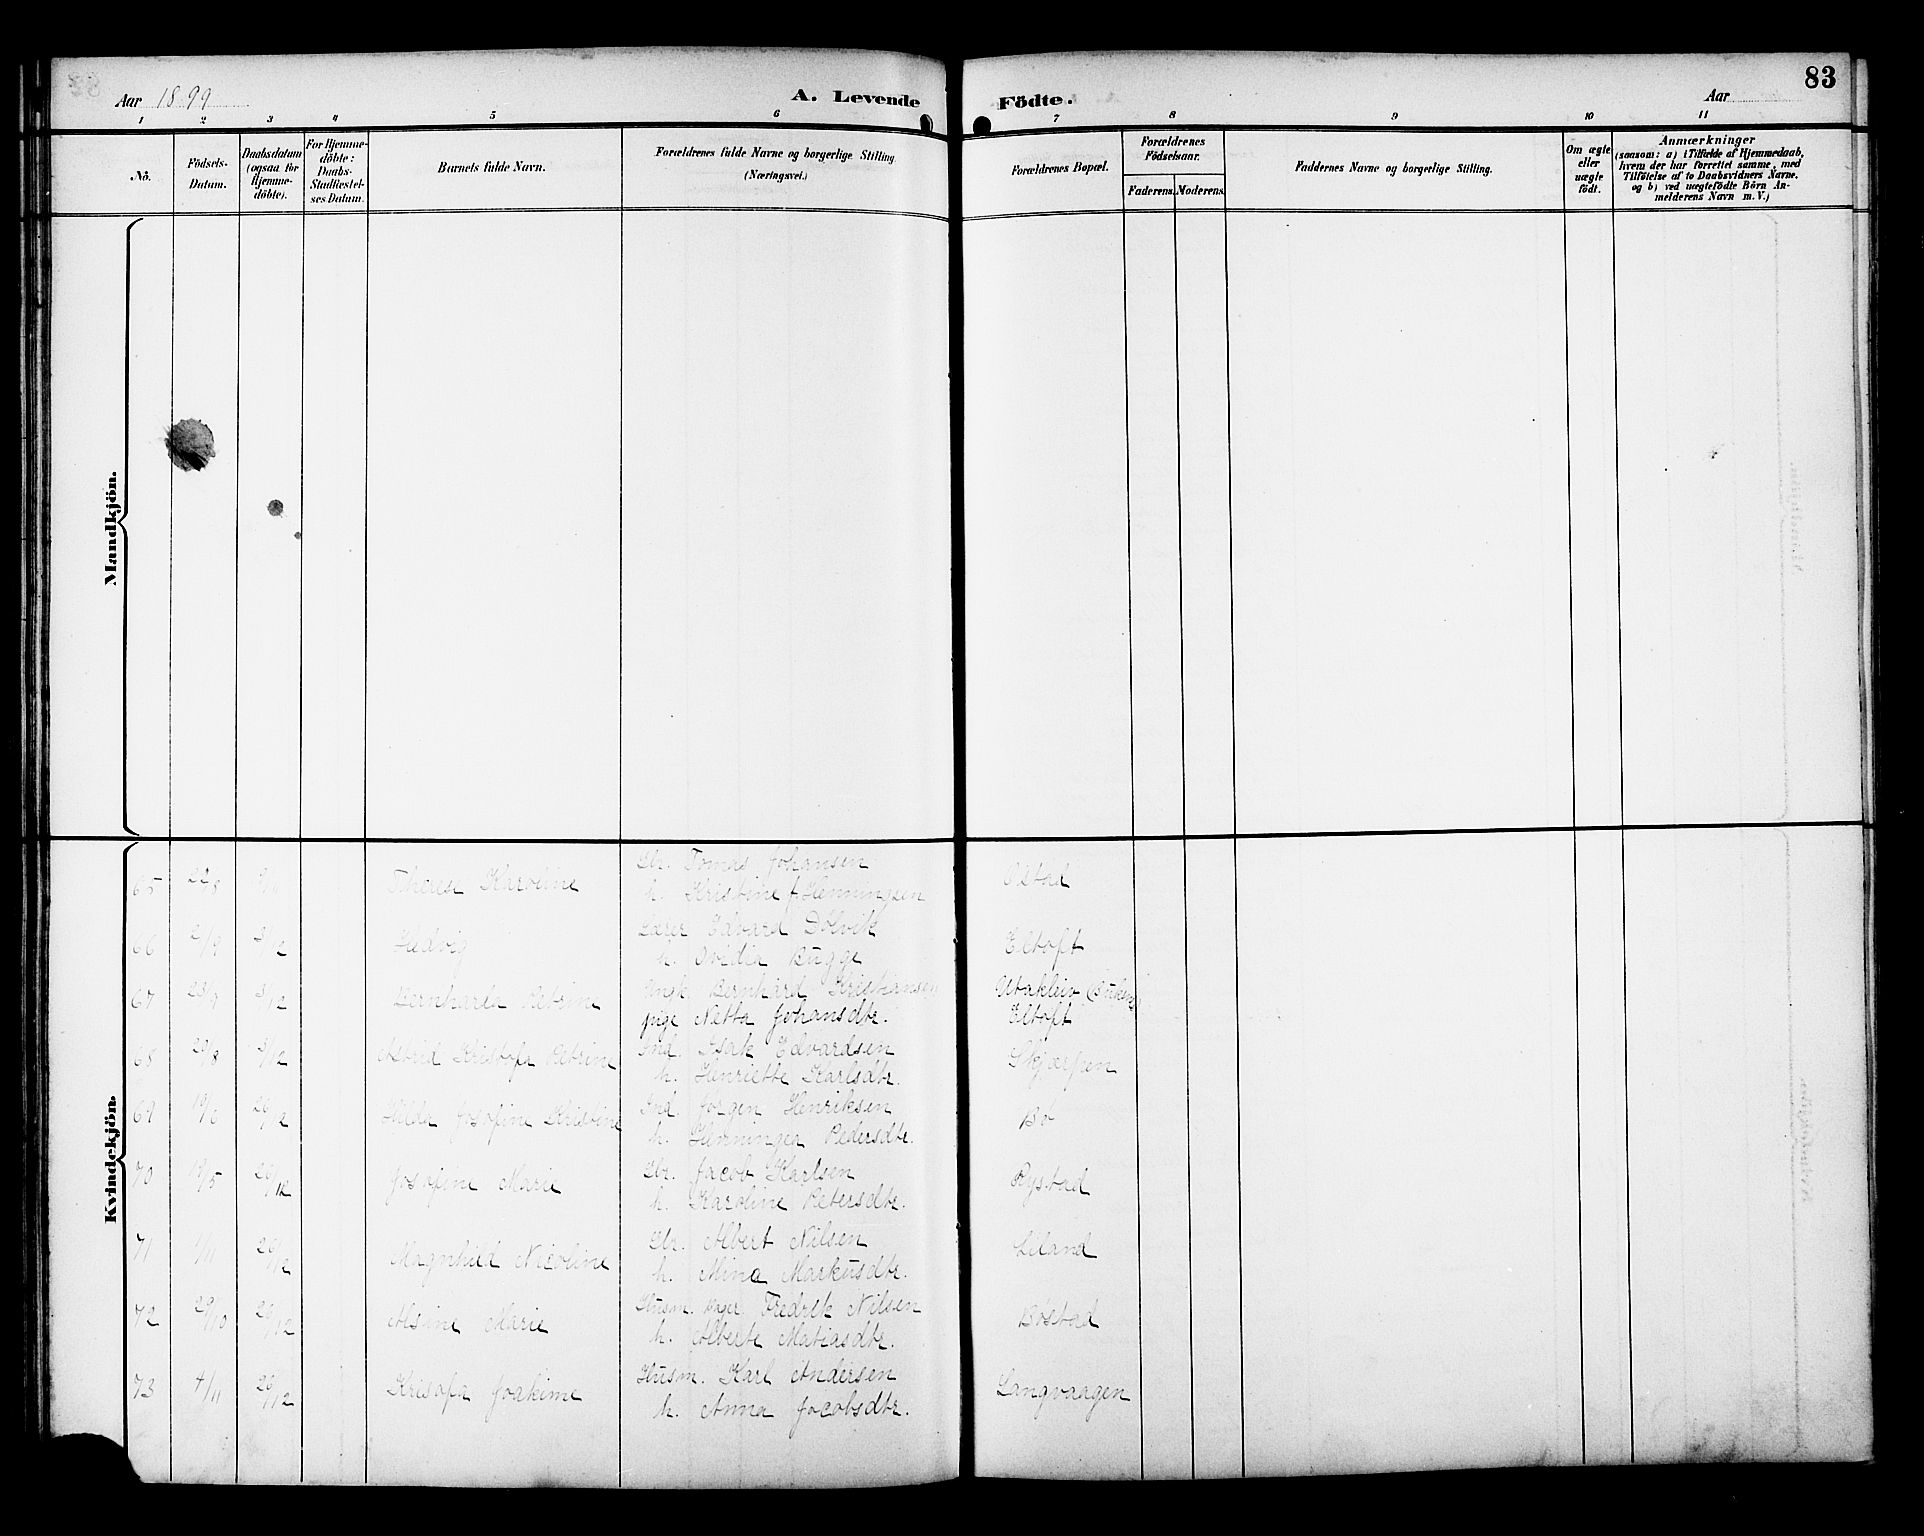 Aar 1899
A. Levende Födte.
Aar
83
1 2 3 4 5 6 7 8 9 10 11
No.
Födsels-Datum.
Daabsdatum (ogsaa for Hjemme-döbte).
For Hjemme-döbte: Daabs-Stadfæstel-ses Datum.
Barnets fulde Navn.
Forældrenes fulde Navne og borgerlige Stilling (Næringsvei.)
Forældrenes Bopæl.
Forældrenes Födselsaar.
Faderens. Moderens.
Faddernes Navne og borgerlige Stilling.
Om ægte eller uægte födt.
Anmærkninger
(saasom: a) i Tilfælde af Hjemmedaab,
hvem der har forrettet samme, med
Tilföielse af to Daabsvidners Navne,
og b) ved uægtefödte Börn An-
melderens Navn m. V.)
Mandkjön.
Kvindekjön.
65 22/8 Therese Karoline Gbr. Tomas Johansen
h. Kristine f. Henningsen
Ostad
66 2/9 3/12 Hedvig Lærer Edvard Dolvik
h. Ovidia Bugge
Eltoft
67 23/9 3/12 Bernharda Petrine Ungk. Bernhard Kristiansen
pige Netta Johansdtr.
Utakleiv
Eltoft
68 20/8 3/12 Astrid Kristofa Petrine Ind. Isak Edvardsen
h. Henriette Karlsdtr.
Skjærpen
69 19/6 26/12 Hilda Josofine Kristine Ind. Jörgen Henriksen
h. Henninga Pedersdtr.
Bö
70 19/5 26/12 Josofine Marie Gbr. Jacob Karlsen
h. Karoline Petersdtr.
Rystad
71 1/11 26/12 Magnhild Nicoline Gbr. Albert Nilsen
h. Mina Markusdtr.
Liland
72 29/10 26/12 Alsine Marie Husm. Fredrik Nilsen
h. Alberte Matiasdtr.
Bostad
73 4/11 26/12 Krisofa Joakime Husm. Karl Andersen
h. Anna Jacobsdtr.
Langvaagen